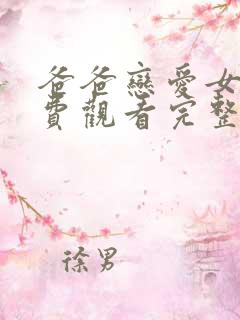 爸爸戀愛女
費觀看完整
徐男